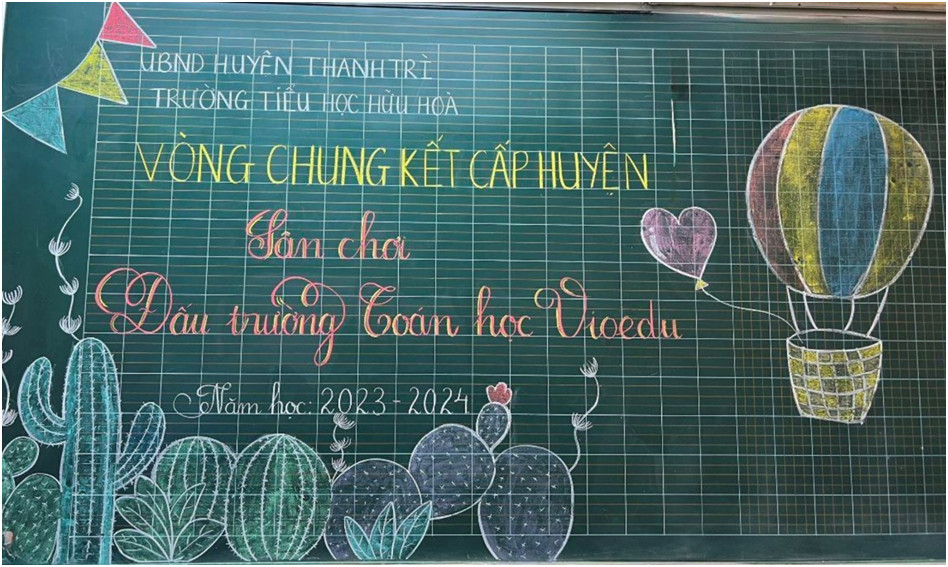 UBND HUYỆN THANH TRÌ
TRƯỜNG TIỂU HỌC HỮU HOÀ
VÒNG CHUNG KẾT CẤP HUYỆN
Sân chơi
Đấu trường Toán học Vioedu
Năm học: 2023-2024